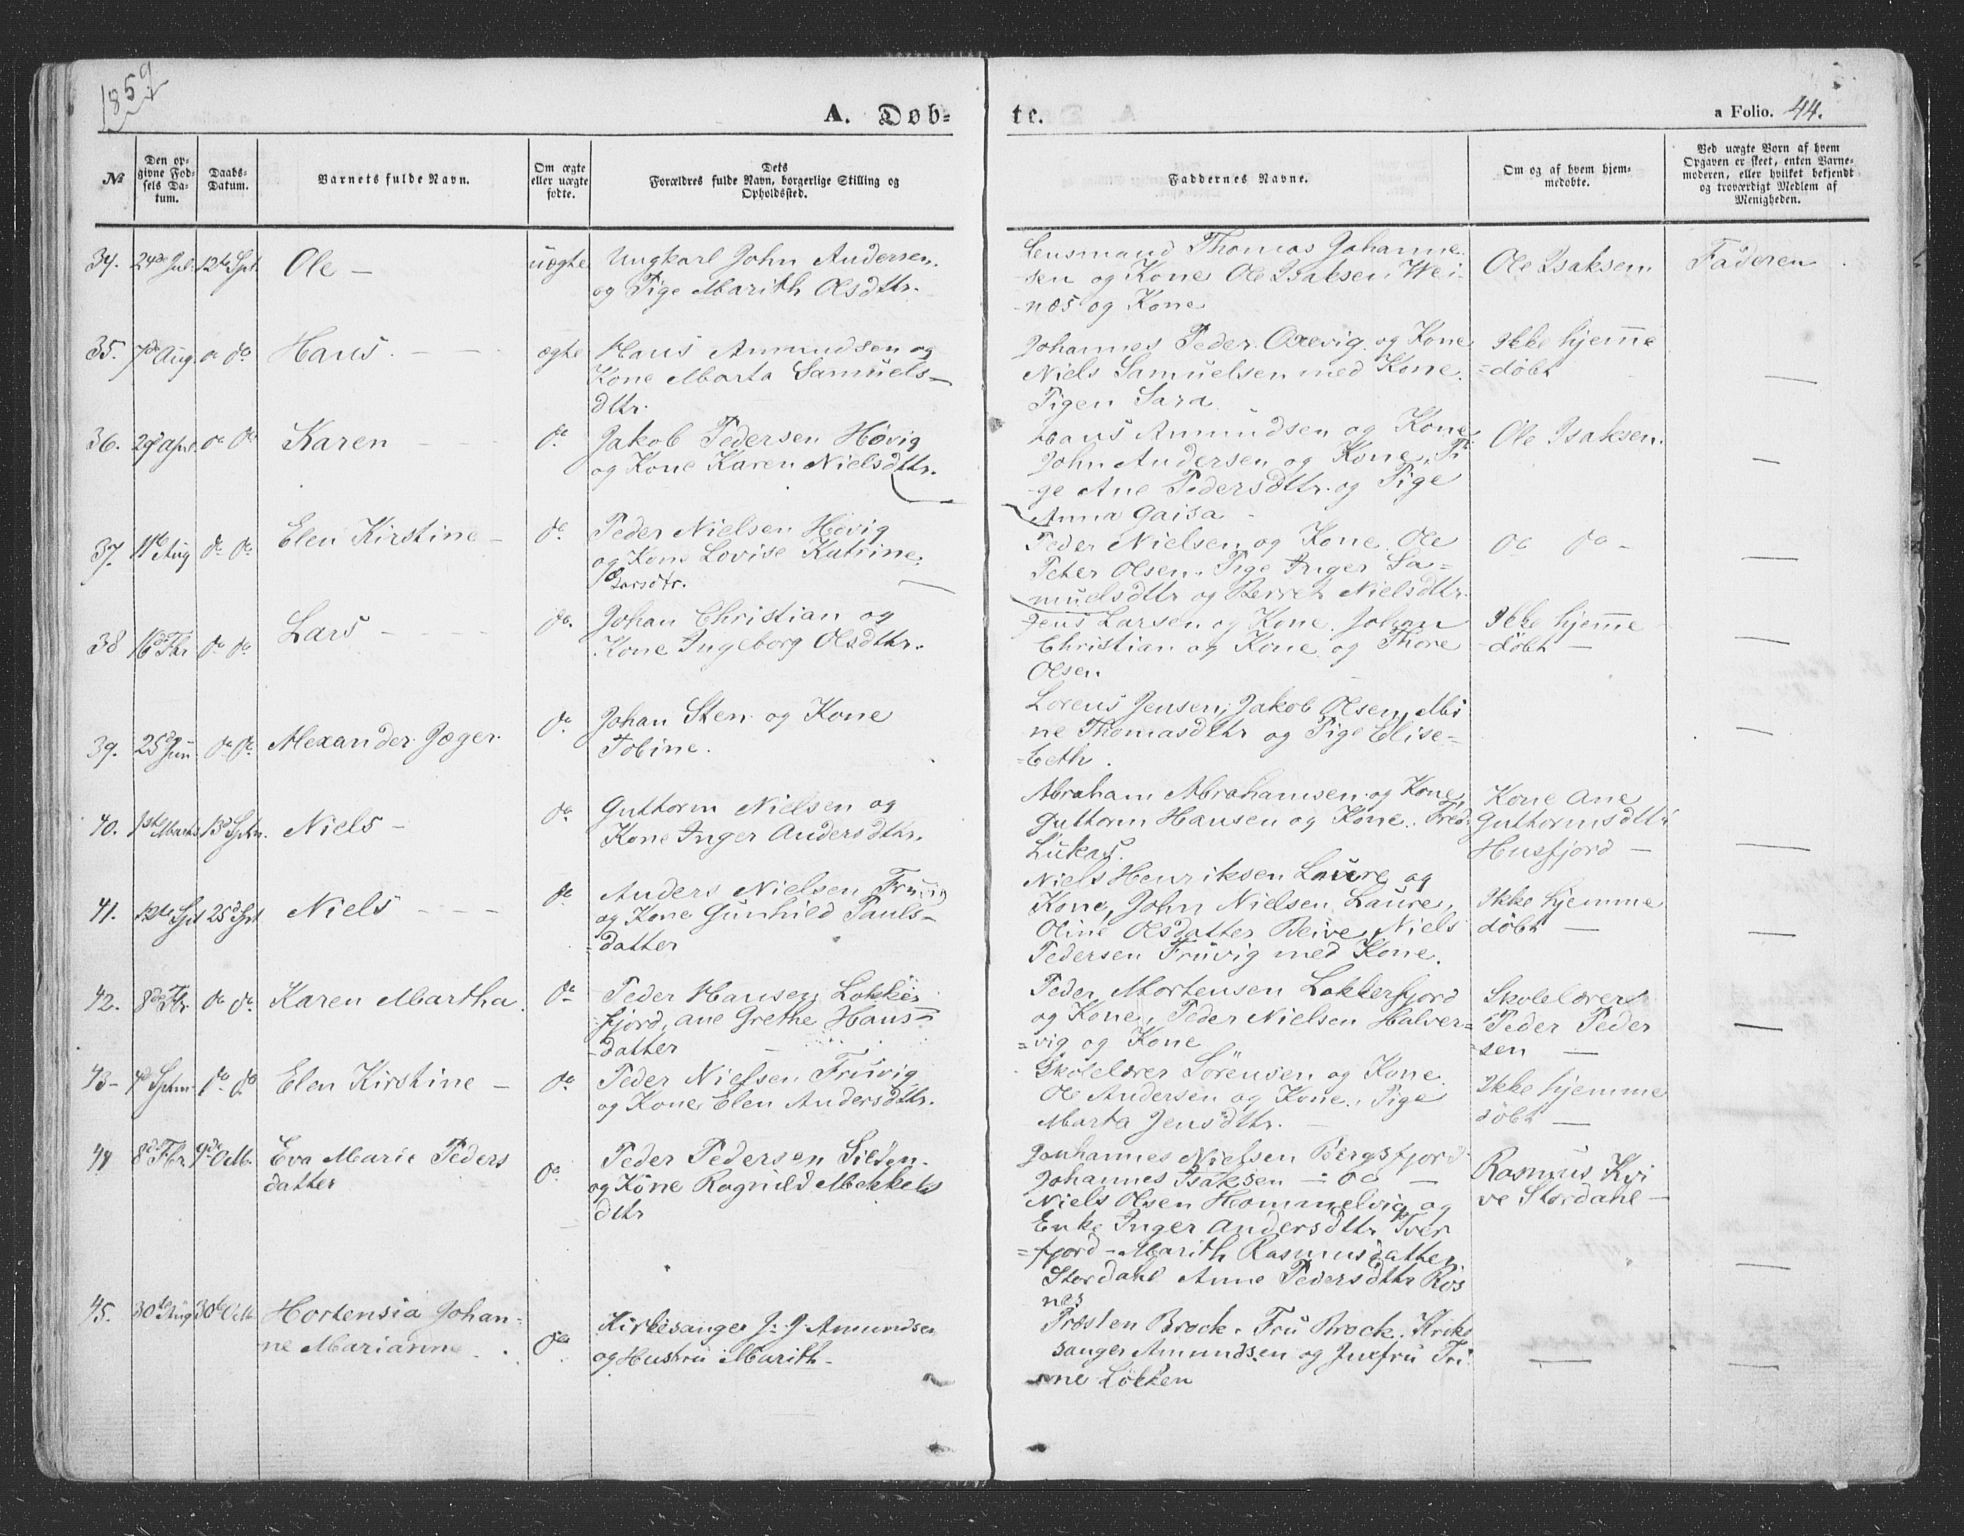 1859
A. Døb-
te.
a Folio. 44.
№
Den op-
givne Fød-
sels Da-
tum.
Daabs-
Datum.
Barnets fulde Navn.
Om ægte
eller uægte
fødte.
Dets
Forældres fulde Navn, borgerlige Stilling og
Opholdssted.
Faddernes Navne.
Om og af hvem hjem-
medøbte.
Ved uægte Børn af hvem
Opgaven er skeet, enten Barne-
moderen, eller hvilket bekjendt
og troværdigt Medlem af
Menigheden.
34. 24de Jul. 12te Spt. Ole — uægte
Ungkarl John Andersen
og Pige Marith Olsdttr.
Lensmand Thomas Johanne
sen og Kone Ole Isaksen Wei-
næs og Kone
Ole Isaksen.
Faderen
35. 7de Aug. do do Hans. — — ægte
Hans Amundsen og
Kone Marta Samuels-
dttr.
Johannes Peder. Oxevig. og Kone
Niels Samuelsen med Kone.
Pigen Sara
Ikke hjemme
=døbt
—
36. 29d April do do Karen — — do
Jakob Pedersen Høvig
og Kone Karen Nielsdttr.
Hans Amundsen og Kone.
John Andersen og Kone, Pi
ge Ane Pedersdttr. og Pige
Anna Gaisa —
Ole Isaksen.
—
37. 11te Aug do do Elen Kirstine — do
Peder Nielsen Høvig
og Kone Lovise Katrine
Larsdtr.
Peder Nielsen og Kone. Ole
Peter Olsen. Pige Inger Sa=
muelsdttr og Berret Nielsdttr.
do do —
—
38 16de Fbr do do Lars — — do.
Johan Christian og
Kone Ingeborg Olsdttr.
Jens Larsen og Kone. Johan
Christian og Kone og Thore
Olsen
Ikke hjemme
-døbt —
—
39. 25d Jun do do Alexander Jæger. do
Johan Sten og Kone
Tobine.
Lorens Jensen, Jakob Olsen, Mi
ne Thomasdttr og Pige Elise-
=beth.
—
40. 1ste Marts 13d Sptn. Niels — do
Guttorm Nielsen og
Kone Inger Andersdttr.
Abraham Abrahamsen og Kone,
Guttorm Hansen og Kone. Fred.
Lukas.
Kone Ane
Guttormsdttr
Husfjord —
—
41. 12te Spt 25d Spt Niels — — — do
Anders Nielsen Fruvig
og Kone Gunhild Pauls-
=datter
Niels Henriksen Laure og
Kone, John Nielsen Laure,
Oline Olsdatter Beive, Niels
Pedersen Fruvig med Kone.
Ikke hjemme
døbt —
—
42. 8de Fbr do do Karen Martha. do
Peder Hansen Lokker
fjord, ane Grethe Hans=
=datter
Peder Mortensen Lokkerfjord
og Kone, Peder Nielsen Halver-
=vig og Kone
Skolelærer
Peder Peder
=sen —
—
43- 4d Sptm do do Elen Kirstine — do
Peder Nielsen Fruvig
og Kone Elen Andersdttr.
Skolelærer Sörensen og Kone.
Ole Andersen og Kone. Pige
Marta Jensdttr. —
Ikke hjemme
døbt —
—
44 8d Fbr. 9de Okt. Eva Marie Peders
datter do
Peder Pedersen Silden.
og Kone Ragnild Mekkels
dttr
Johannes Nielsen Bergsfjord
Johannes Isaksen — do —
Niels Olsen Hammelvig og
Enke Inger Andersdttr Tver
=fjord - Marith Rasmusdatter
Stordahl Anne Pedersdttr Røs
næs
Rasmus Kvi
ve Stordahl —
—
45. 30te Aug 30te Okt Hortensia Johan-
ne Marianne. do
Kirkesanger J. J. Amundsen
og Hustru Marith.
Præsten Brock. Fru Brock. Kirke
sanger Amundsen og Jomfru Tri
ne Løkken
—
—